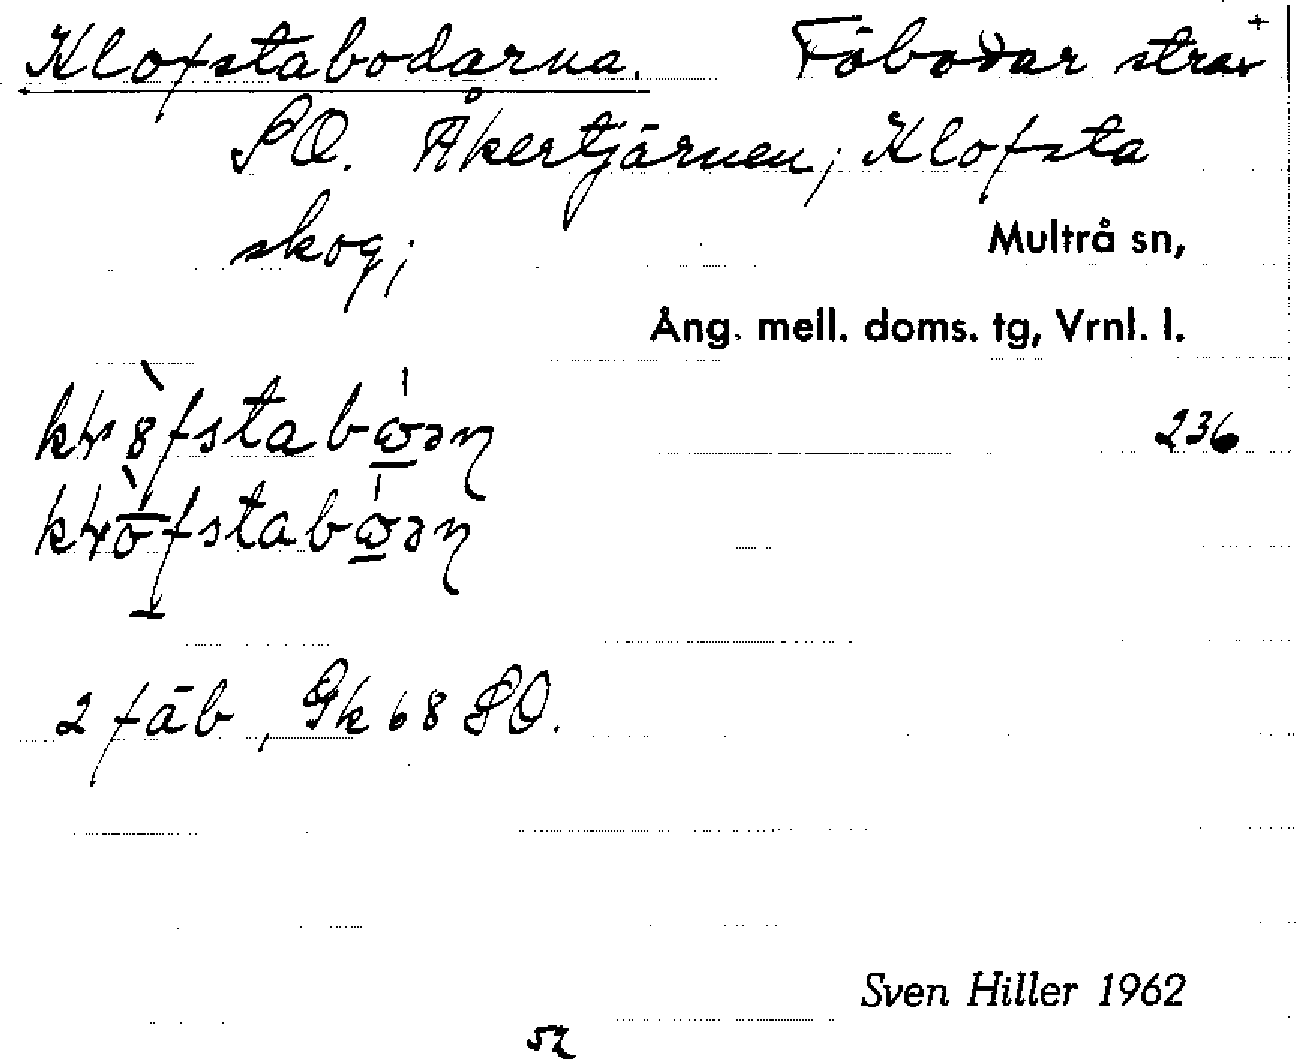 Klofstabodarna. Fäbodar strax +
SO. Åkertjärnen; Klofsta
skog;
Multrå sn,
Ång. mell. doms. tg, Vrnl. l.
236
2 fäb, Gk 68 SO.
Sven Hiller 1962
52